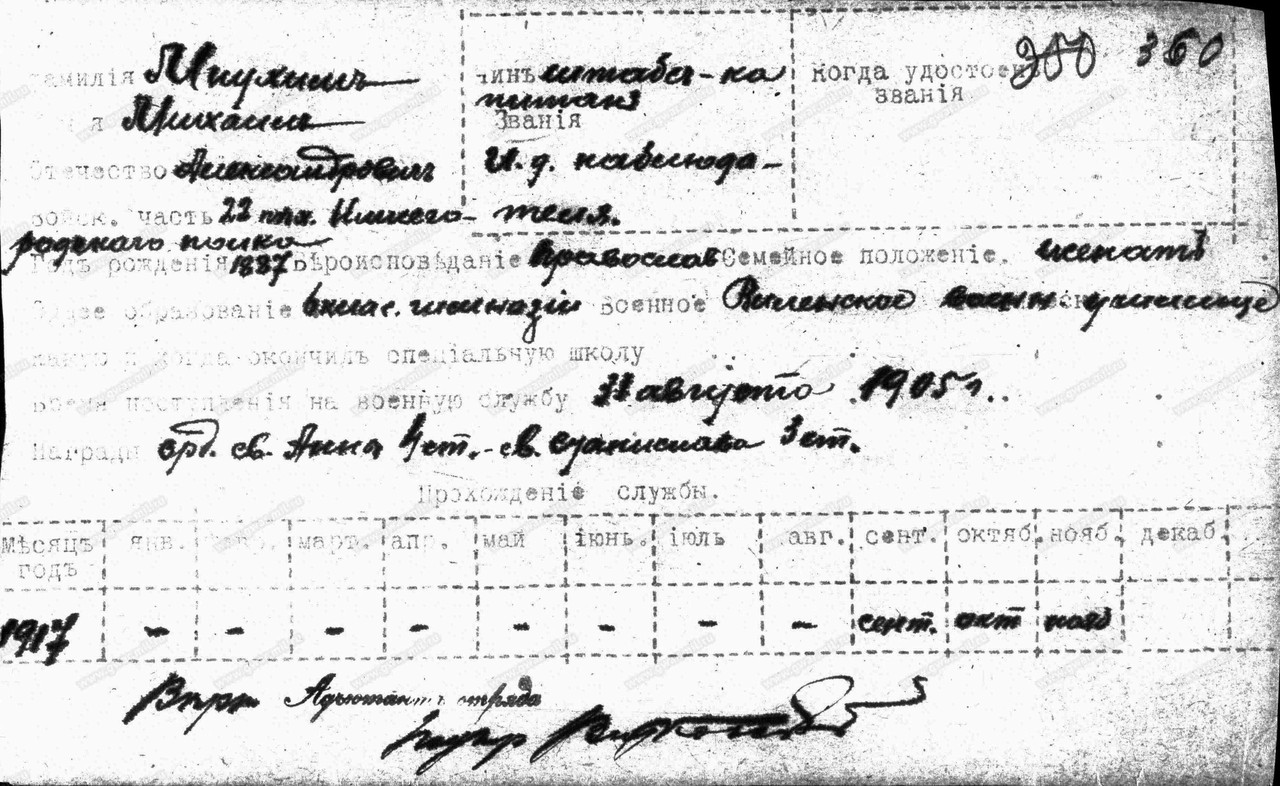 300 360
Фамилія Мпухинъ
Чинъ штабсъ-ка
питанъ
Когда удостоен
званія
я Михаилъ
Званія
Отечество Александровичъ
И. д. наблюда-
теля.
Войск. часть 22 пѣх. Нижего-
родскаго полка
Годъ рожденія 1887 Вѣроисповѣданіе Православ Семейное положеніе. женатъ
образованіе 6 клас. гимназіи Военное Виленское военн. училище
какую и когда окончилъ спеціальную школу
Время поступленія на военную службу 31 августа 1905 г.
Награды орд. св. Анна 4 ст. - св. Станислава 3 ст.
Прохожденіе службы.
Мѣсяцъ янв. март. апр. май іюнь. іюль авг. сент. октяб. нояб. декаб.
годъ
1917 - - - - - - - - сент. окт нояб
Вкрн Адъютантъ отряда